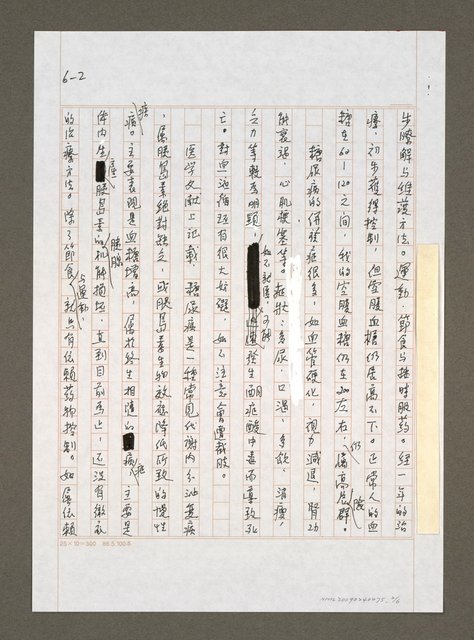 6-2
步瞭解与維護方法。運動、節食与按時服藥。經一年的治
療，初步獲得控制，但空腹血糖仍居高不下。正常人的血
糖在60－120之間，我的空腹血糖仍在200左右，仍屬高危險群。
糖尿病的併發症很多，如血管硬化，視力減退，腎功
能衰弱，心肌梗塞等。症狀：多尿，口渴，多飲，消瘦，
乏力等較為明顯，如不就醫，可能發生酮症酸中毒而導致死
亡。對血液循環有很大妨礙，如不注意，會遭截肢。
医学文献上記載，糖尿病是一種常見代謝內分泌疾病
，屬胰島素絕對缺乏，或胰島素生物效應降低所致的慢性
病。主要表現是血糖增高，屬於終生相隨的病症，主要是
体內生產胰島素的胰腺机能損壞，直到目前為止，还沒有徹底
的治療方法。除了節食与運動，就只有依賴藥物控制。如屬依賴
25×10＝300